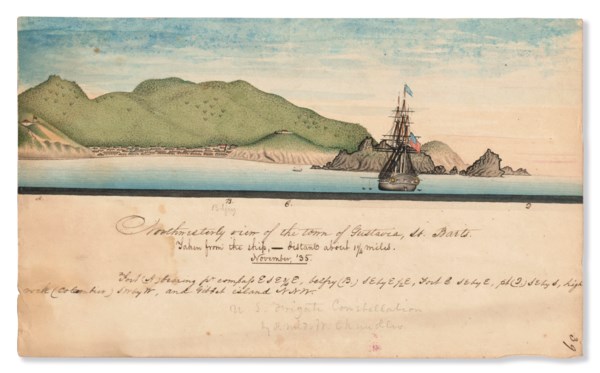 A. B. C. D
Belfry
Northwesterly view of the town of Gustavia, St. Barts.
Taken from the ship, — distant about 1½ miles.
November, '35.
Fort (A) bearing pr compass E S E ½ E, belfry (B) S E by E ½ E, Fort C S E by E, pt (D) S E by S, high
rock (Columbier) S W by W, and Gibbet island N.N.W.
U. S. Frigate Constellation
by
39